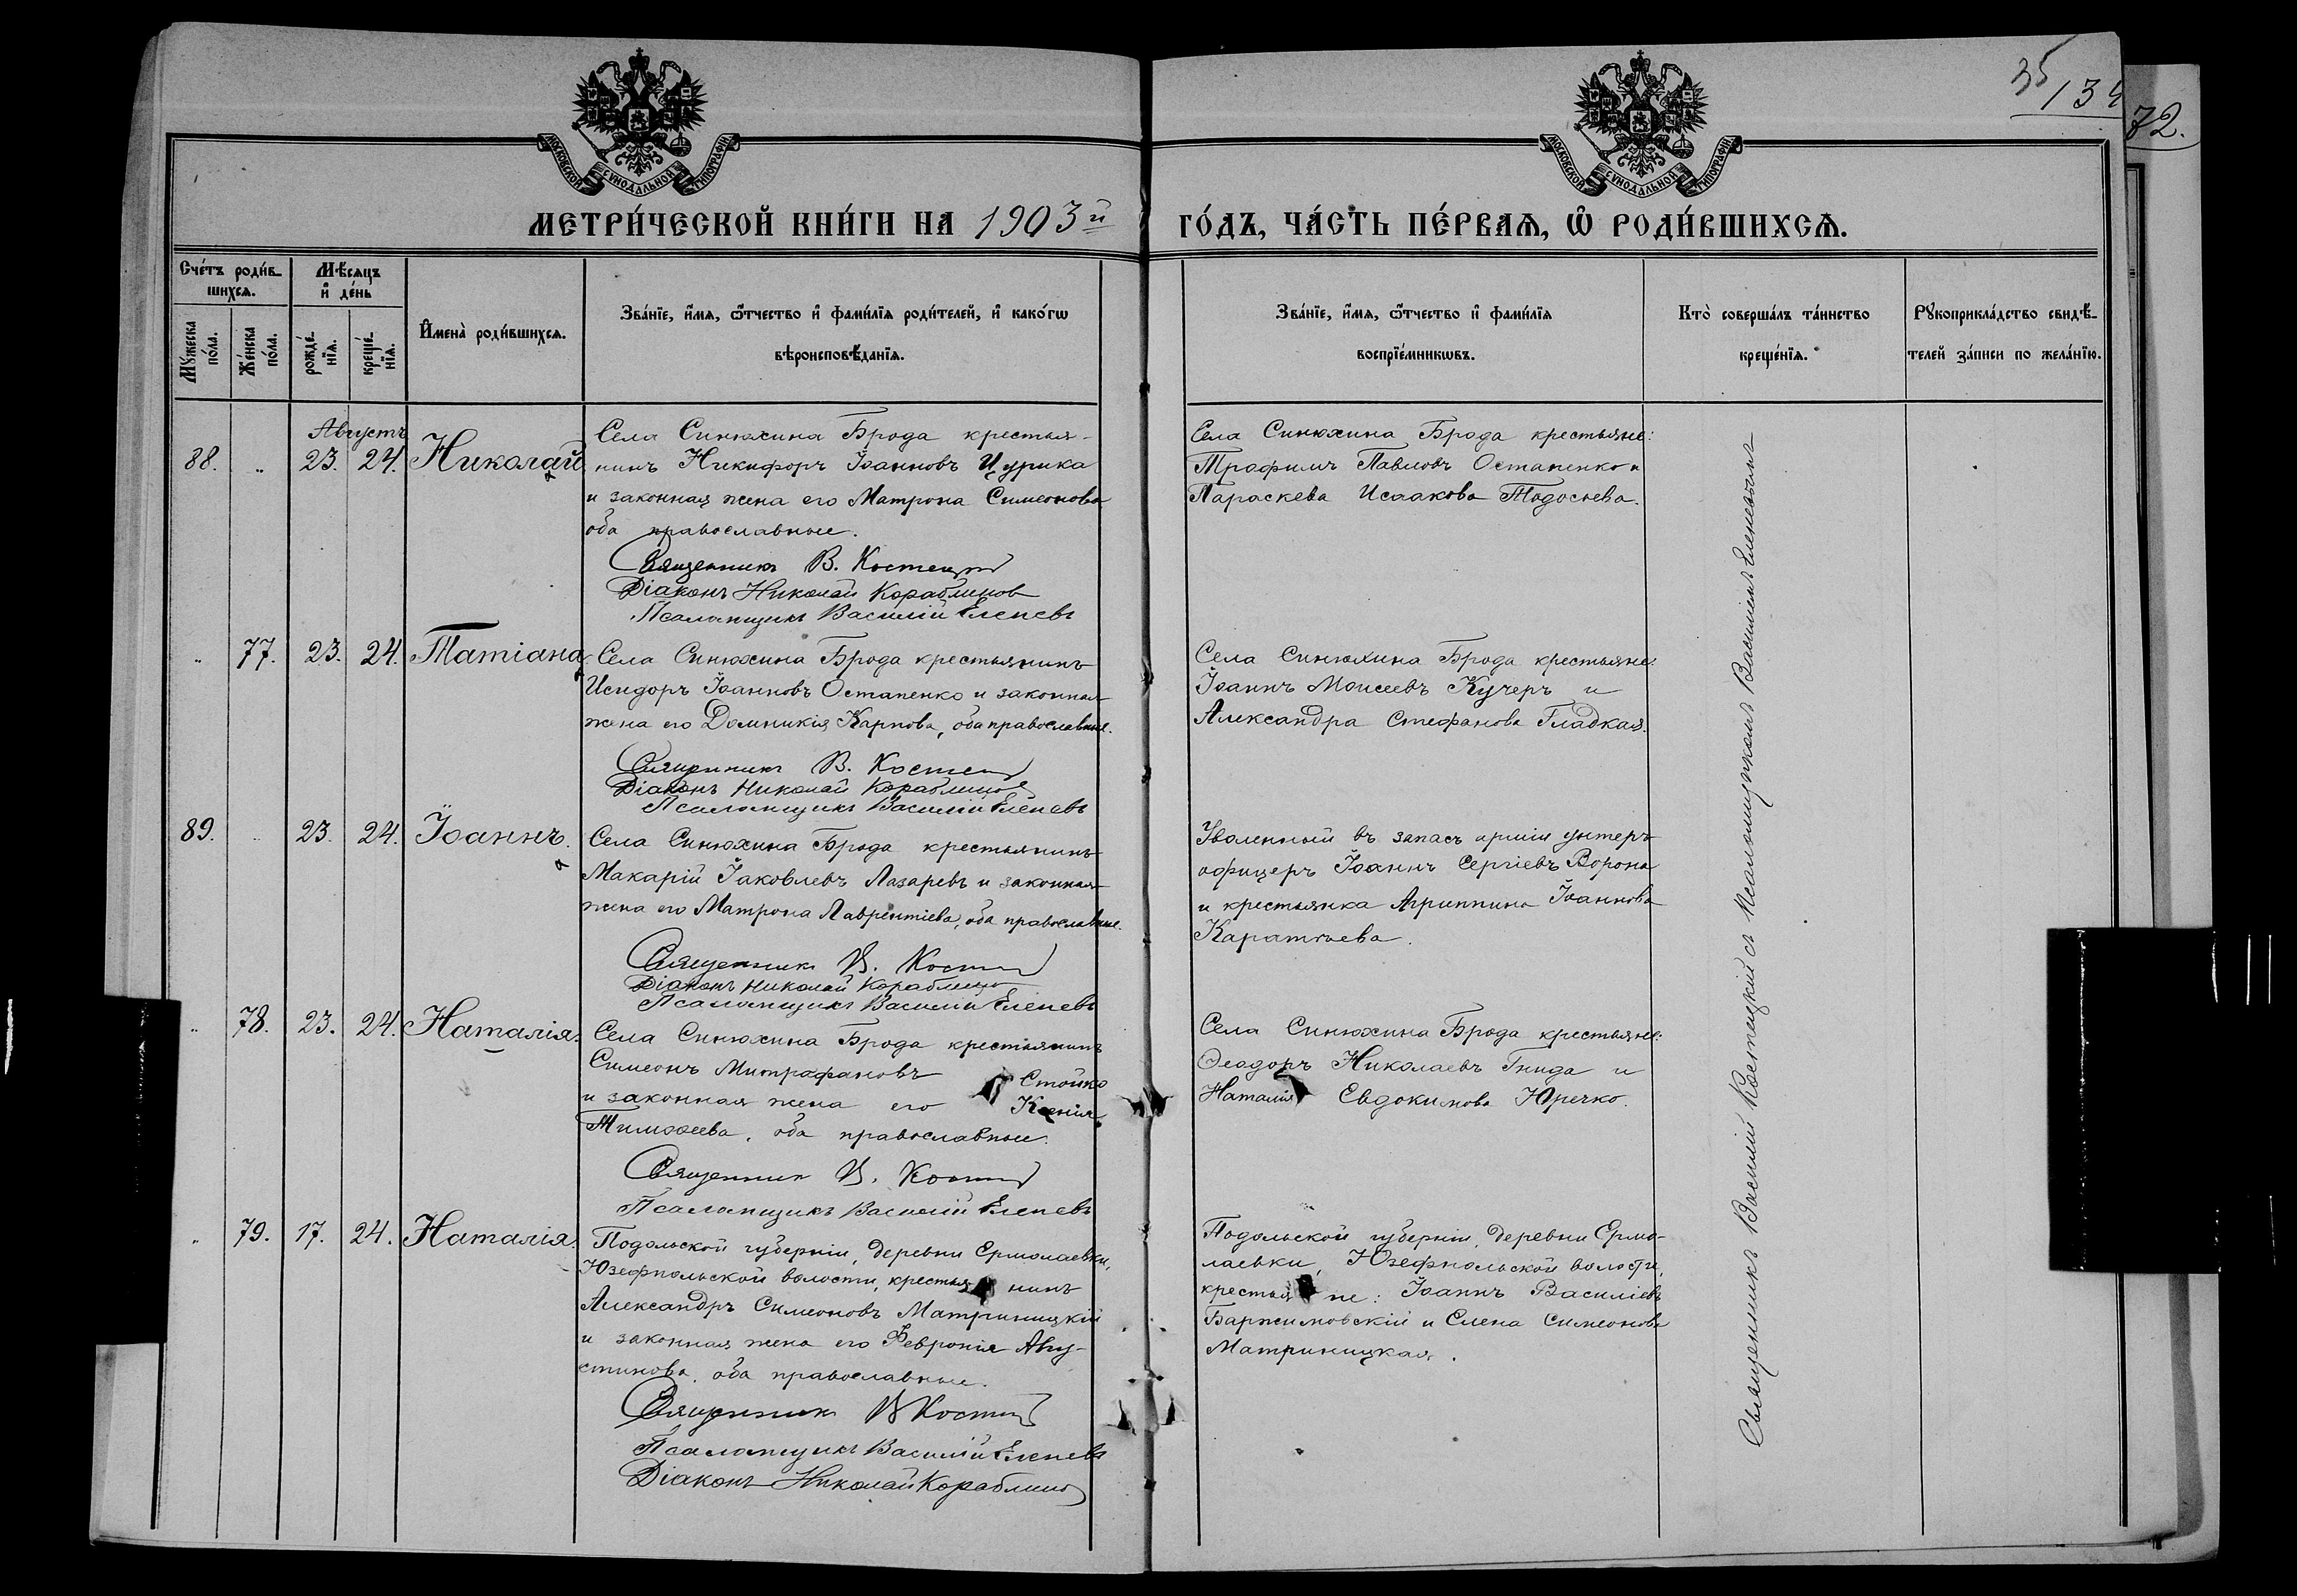 35
134
72.
МОСКОВСКОЙ СѴНОДАЛЬНОЙ ТИПОГРАФІИ
МОСКОВСКОЙ СѴНОДАЛЬНОЙ ТИПОГРАФІИ
МЕТРИ́ЧЕСКОЙ КНИ́ГИ НА 1903й
ГО́ДЪ, ЧА́СТЬ ПЕ́РВАѦ, Ѡ҆ РОДИ́ВШИХСѦ.
Сче́тъ роди́в-
шихсѧ.
Мꙋ́жеска
по́ла.
Же́нска
по́ла.
Мѣ́сѧцъ
и҆ де́нь
рожде́-
нїѧ.
креще́-
нїѧ.
И҆мена̀ роди́вшихсѧ.
Зва́нїе, и҆́мѧ, ѻ҆́тчество и҆ фами́лїѧ роди́телей, и҆ како́гѡ
вѣроисповѣ́данїѧ.
Зва́нїе, и҆́мѧ, ѻ҆́тчество и҆ фами́лїѧ
воспрїе́мникѡвъ.
Кто̀ соверша́лъ та́инство
креще́нїѧ.
Рꙋкоприкла́дство свидѣ́-
телей за́писи по жела́нїю.
Августъ
88. „ 23. 24. Николай
Села Синюхина Брода крестья-
нинъ Никифоръ Іоанновъ Цурика
и законная жена его Матрона Симеонова
оба православные.
Священникъ В. Костецкій
Діаконъ Николай Кораблиновъ
Псаломщикъ Василій Елепевъ
Села Синюхина Брода крестьяне:
Трофимъ Павловъ Остапенко и
Параскева Исаакова Тодосьева.
„ 77. 23. 24. Татіана
Села Синюхина Брода крестьянинъ
Исидоръ Іоанновъ Остапенко и законная
жена его Домникія Карпова, оба православные.
Священникъ В. Костецкій
Діаконъ Николай Кораблиновъ
Псаломщикъ Василій Елепевъ
Села Синюхина Брода крестьяне:
Іоаннъ Моисеевъ Кучеръ и
Александра Стефанова Гладкая.
89. „ 23. 24. Іоаннъ.
Села Синюхина Брода крестьянинъ
Макарій Іаковлевъ Лазаревъ и законная
жена его Матрона Лаврентіева, оба православные.
Священникъ В. Костецкій
Діаконъ Николай Кораблиновъ
Псаломщикъ Василій Елепевъ
Уволенный въ запасъ арміи унтеръ-
офицеръ Іоаннъ Сергіевъ Ворона
и крестьянка Агриппина Іоаннова
Каратѣева.
„ 78. 23. 24. Наталія.
Села Синюхина Брода крестьянинъ
Симеонъ Митрофановъ Стойко
и законная жена его Ксенія
Тимоѳеева, оба православные.
Священникъ В. Костецкій
Псаломщикъ Василій Елепевъ
Села Синюхина Брода крестьяне:
Ѳеодоръ Николаевъ Гнида и
Наталія Евдокимова Юречко.
„ 79. 17. 24. Наталія.
Подольской губерніи, деревни Ермолаевки,
Юзефпольской волости, крестьянинъ
Александръ Симеоновъ Матриницкій
и законная жена его Февронія Авгу-
стинова, оба православные.
Священникъ В Костецкій
Псаломщикъ Василій Елепевъ
Діаконъ Николай Кораблиновъ
Подольской губерніи, деревни Ермо-
лаевки, Юзефпольской волости,
крестьяне: Іоаннъ Василіевъ
Баржимовскій и Елена Симеонова
Матриницкая.
Священникъ Василій Костецкій съ Псаломщикомъ Василіемъ Елепевымъ